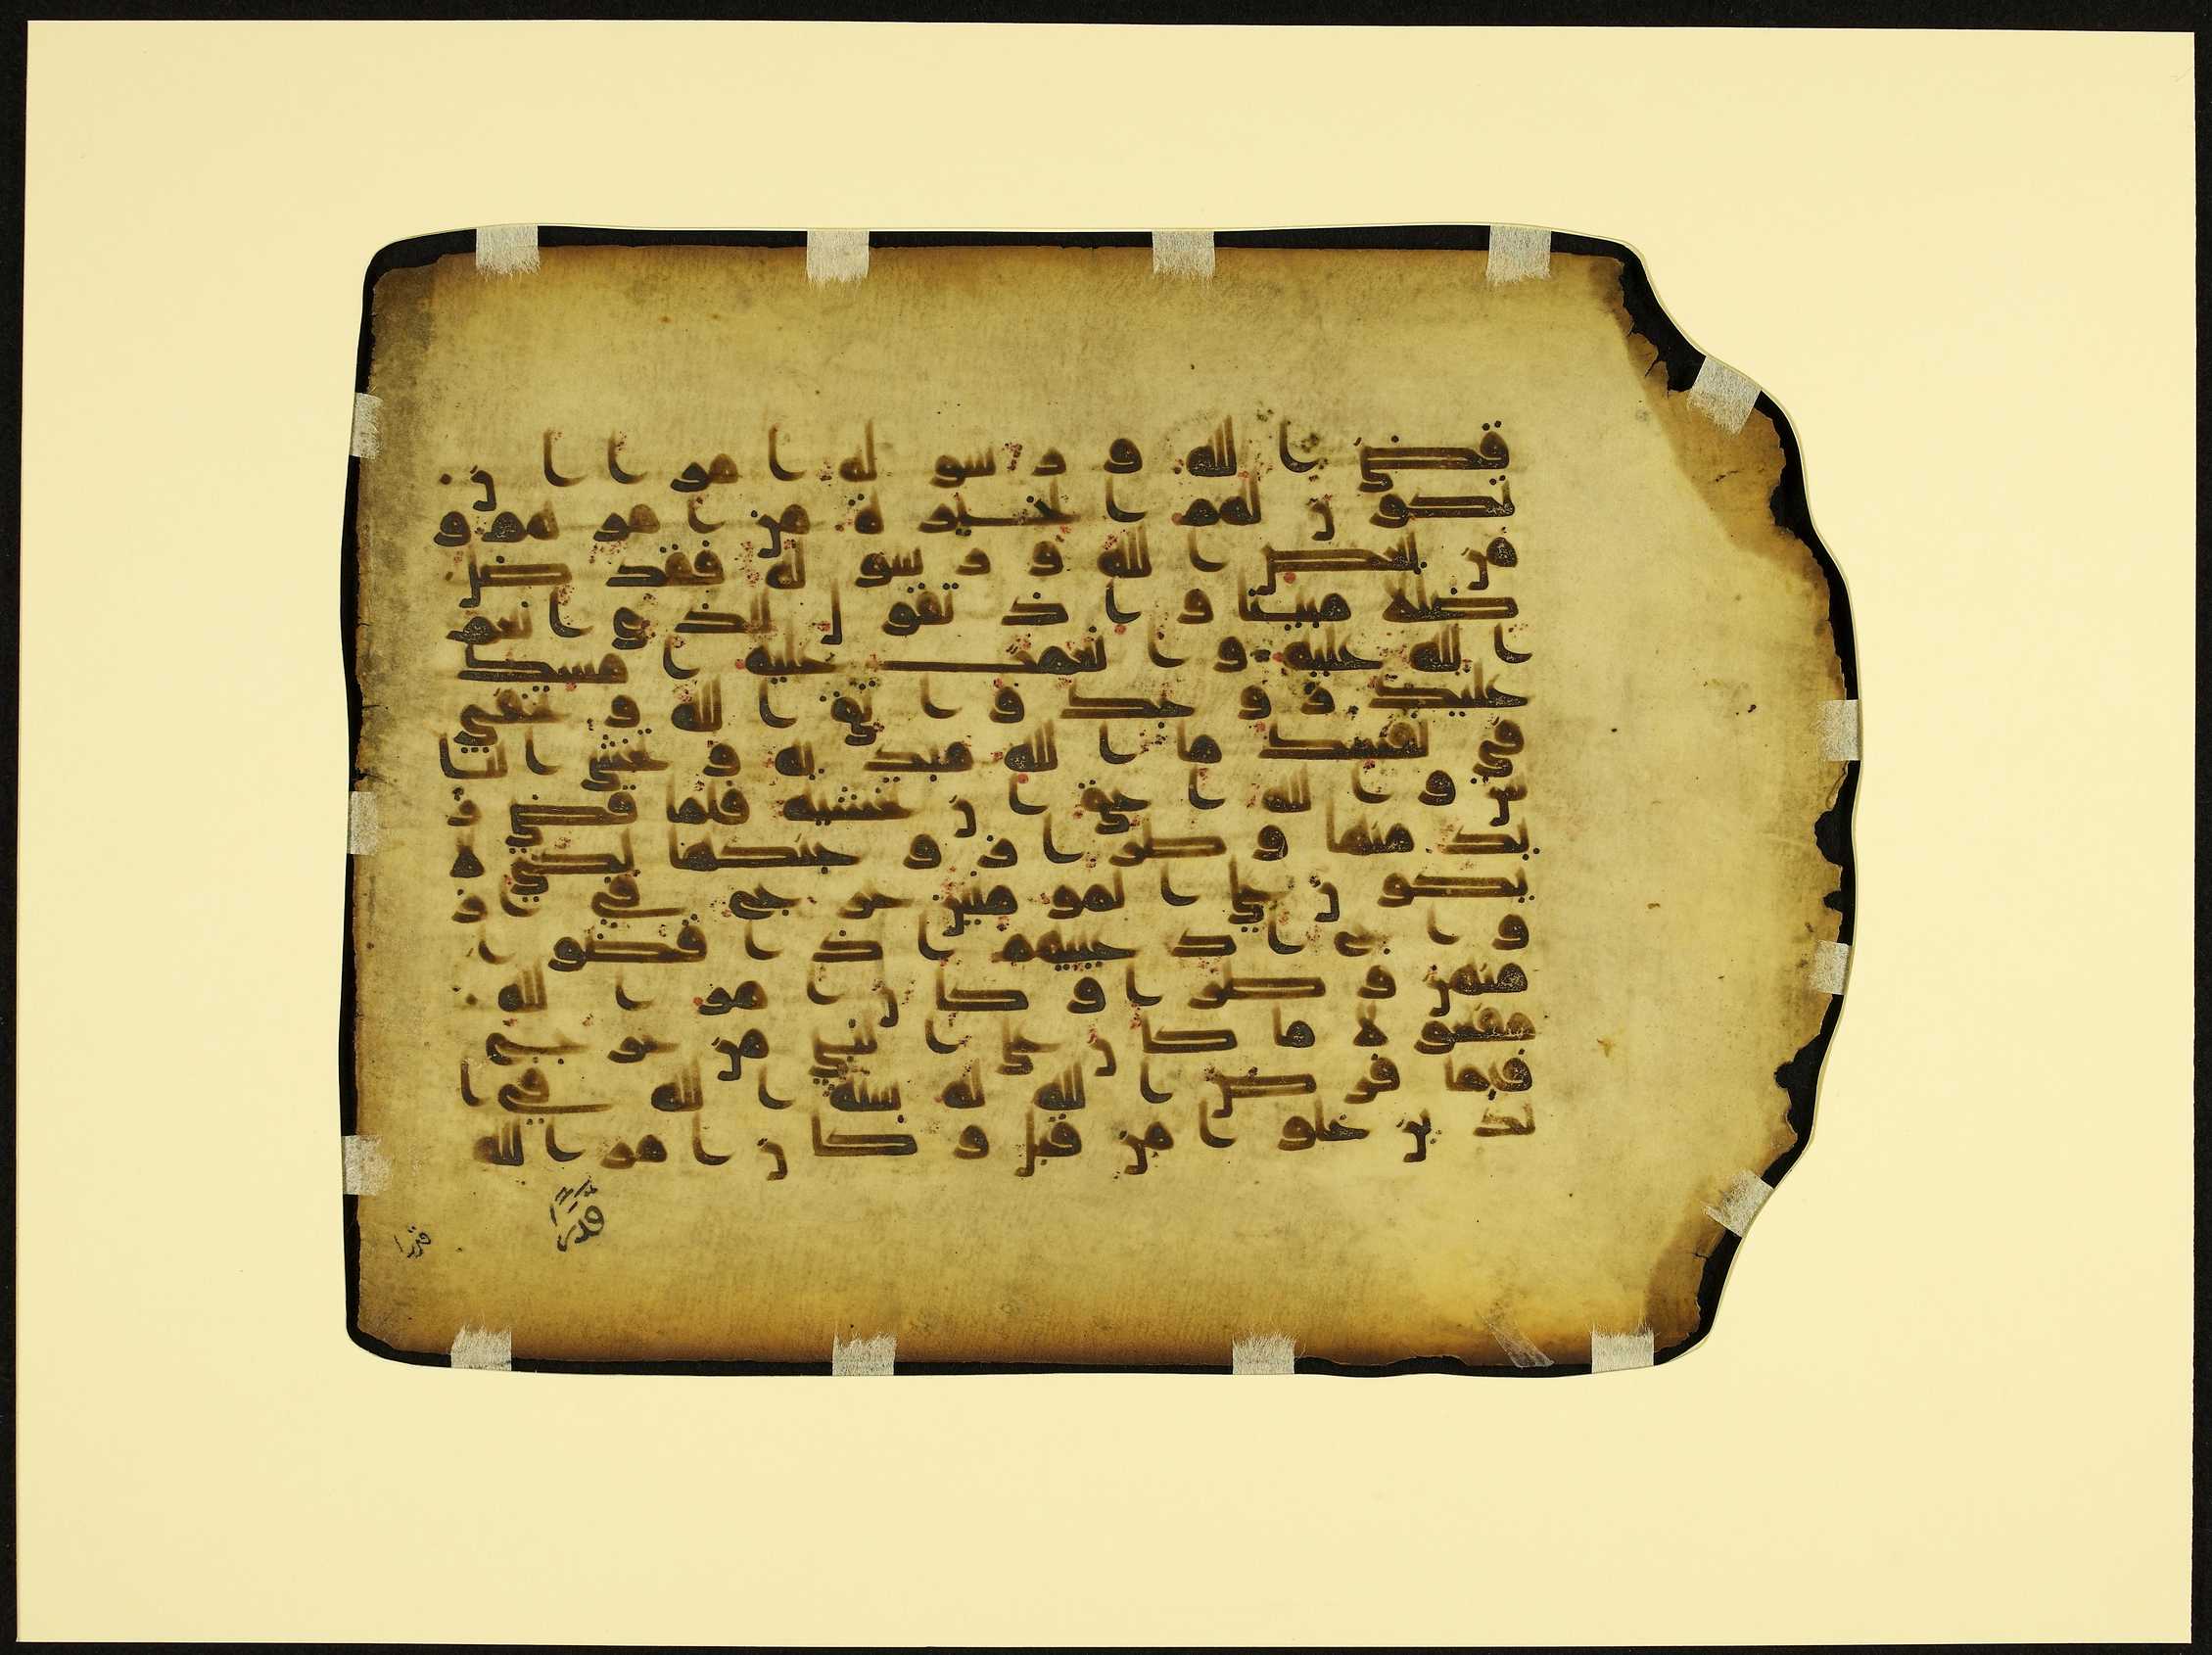 قضى الله ورسوله امرا ان
تكون لهم الخيرة من امرهم و
من يعص الله ورسوله فقد ضل
ضللا مبينا واذ تقول للذي انعم
الله عليه وانعمت عليه امسك
عليك زوجك واتق الله وتخفي
في نفسك ما الله مبديه وتخشى النا
س والله احق ان تخشيه فلما قضى ز
يد منها وطرا زوجنكها لكي لا
يكون على المومنين حرج في از
واج ادعييهم اذا قضوا
منهن وطرا وكان امر الله
مفعولا ما كان على النبي من حرج
فيما فرض الله له سنة الله في ا
لذين خلوا من قبل وكان امر الله
قدرا
قدرا